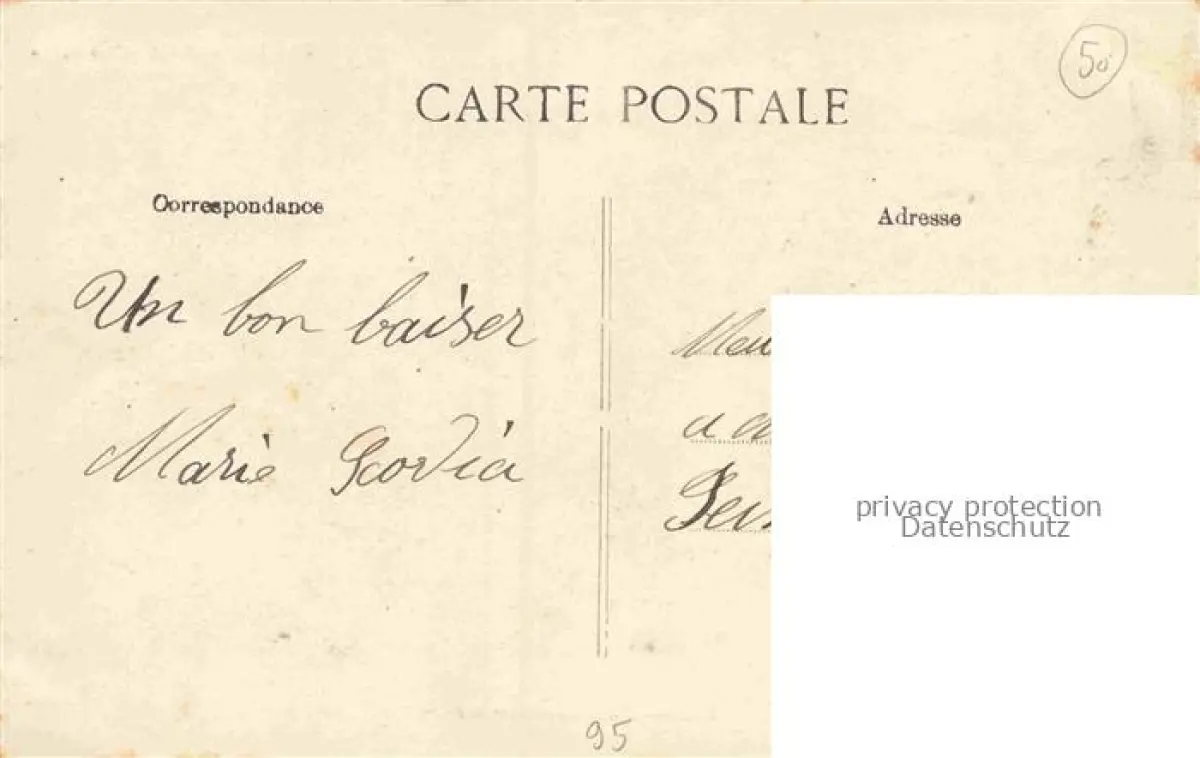 50
CARTE POSTALE
Correspondance
Adresse
Un bon baiser
Marie
privacy protection
Datenschutz
95